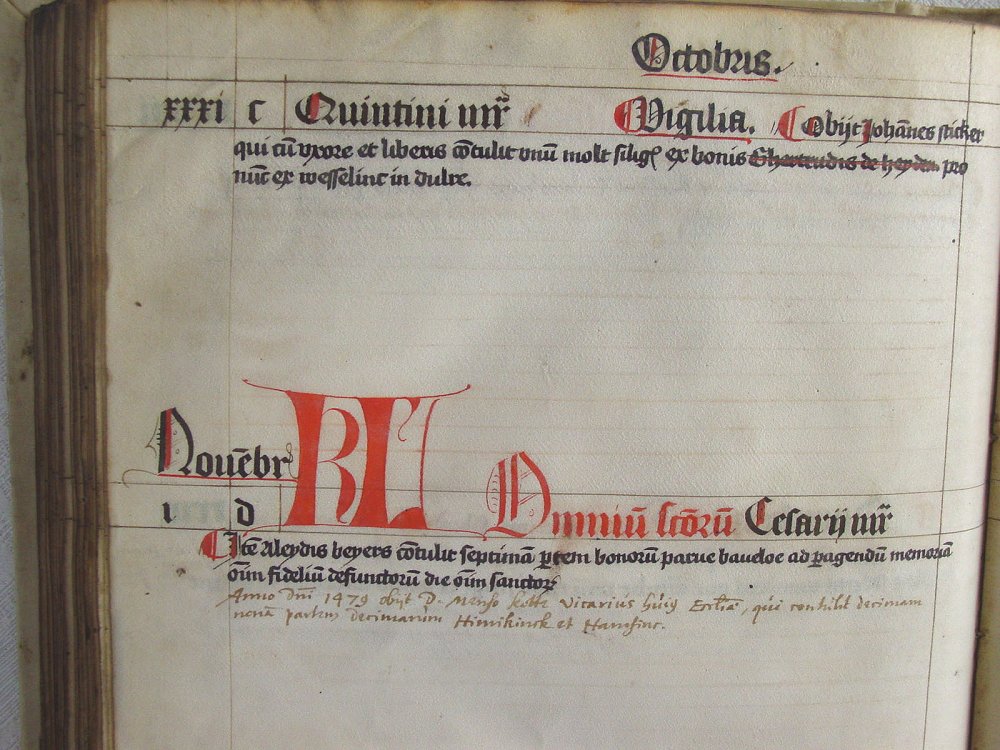 Octobris.
xxxi c Quintini mr̄ Vigilia. Obijt Johān̄es sticker
qui cū vxore et liberis cōtulit vnū molt siliḡ ex bonis Ghertrudis de heyden pro
nūc ex wesselinc in dulre.
Nouēbr KL
i d Omniū scōrū Cesarij mr̄
Itē Aleydis beyers cōtulit septimā ꝑtem bonorū parue baueloe ad ꝑagendū memoriā
oīm fideliū defunctorū die oīm sanctorꝝ
Anno Dn̄i 1479 obijt D. Menso Vicarius hui9 Ecclīæ, qui contulit decimam
nonam partem decimarum Hinrikinck et Hamsinc.